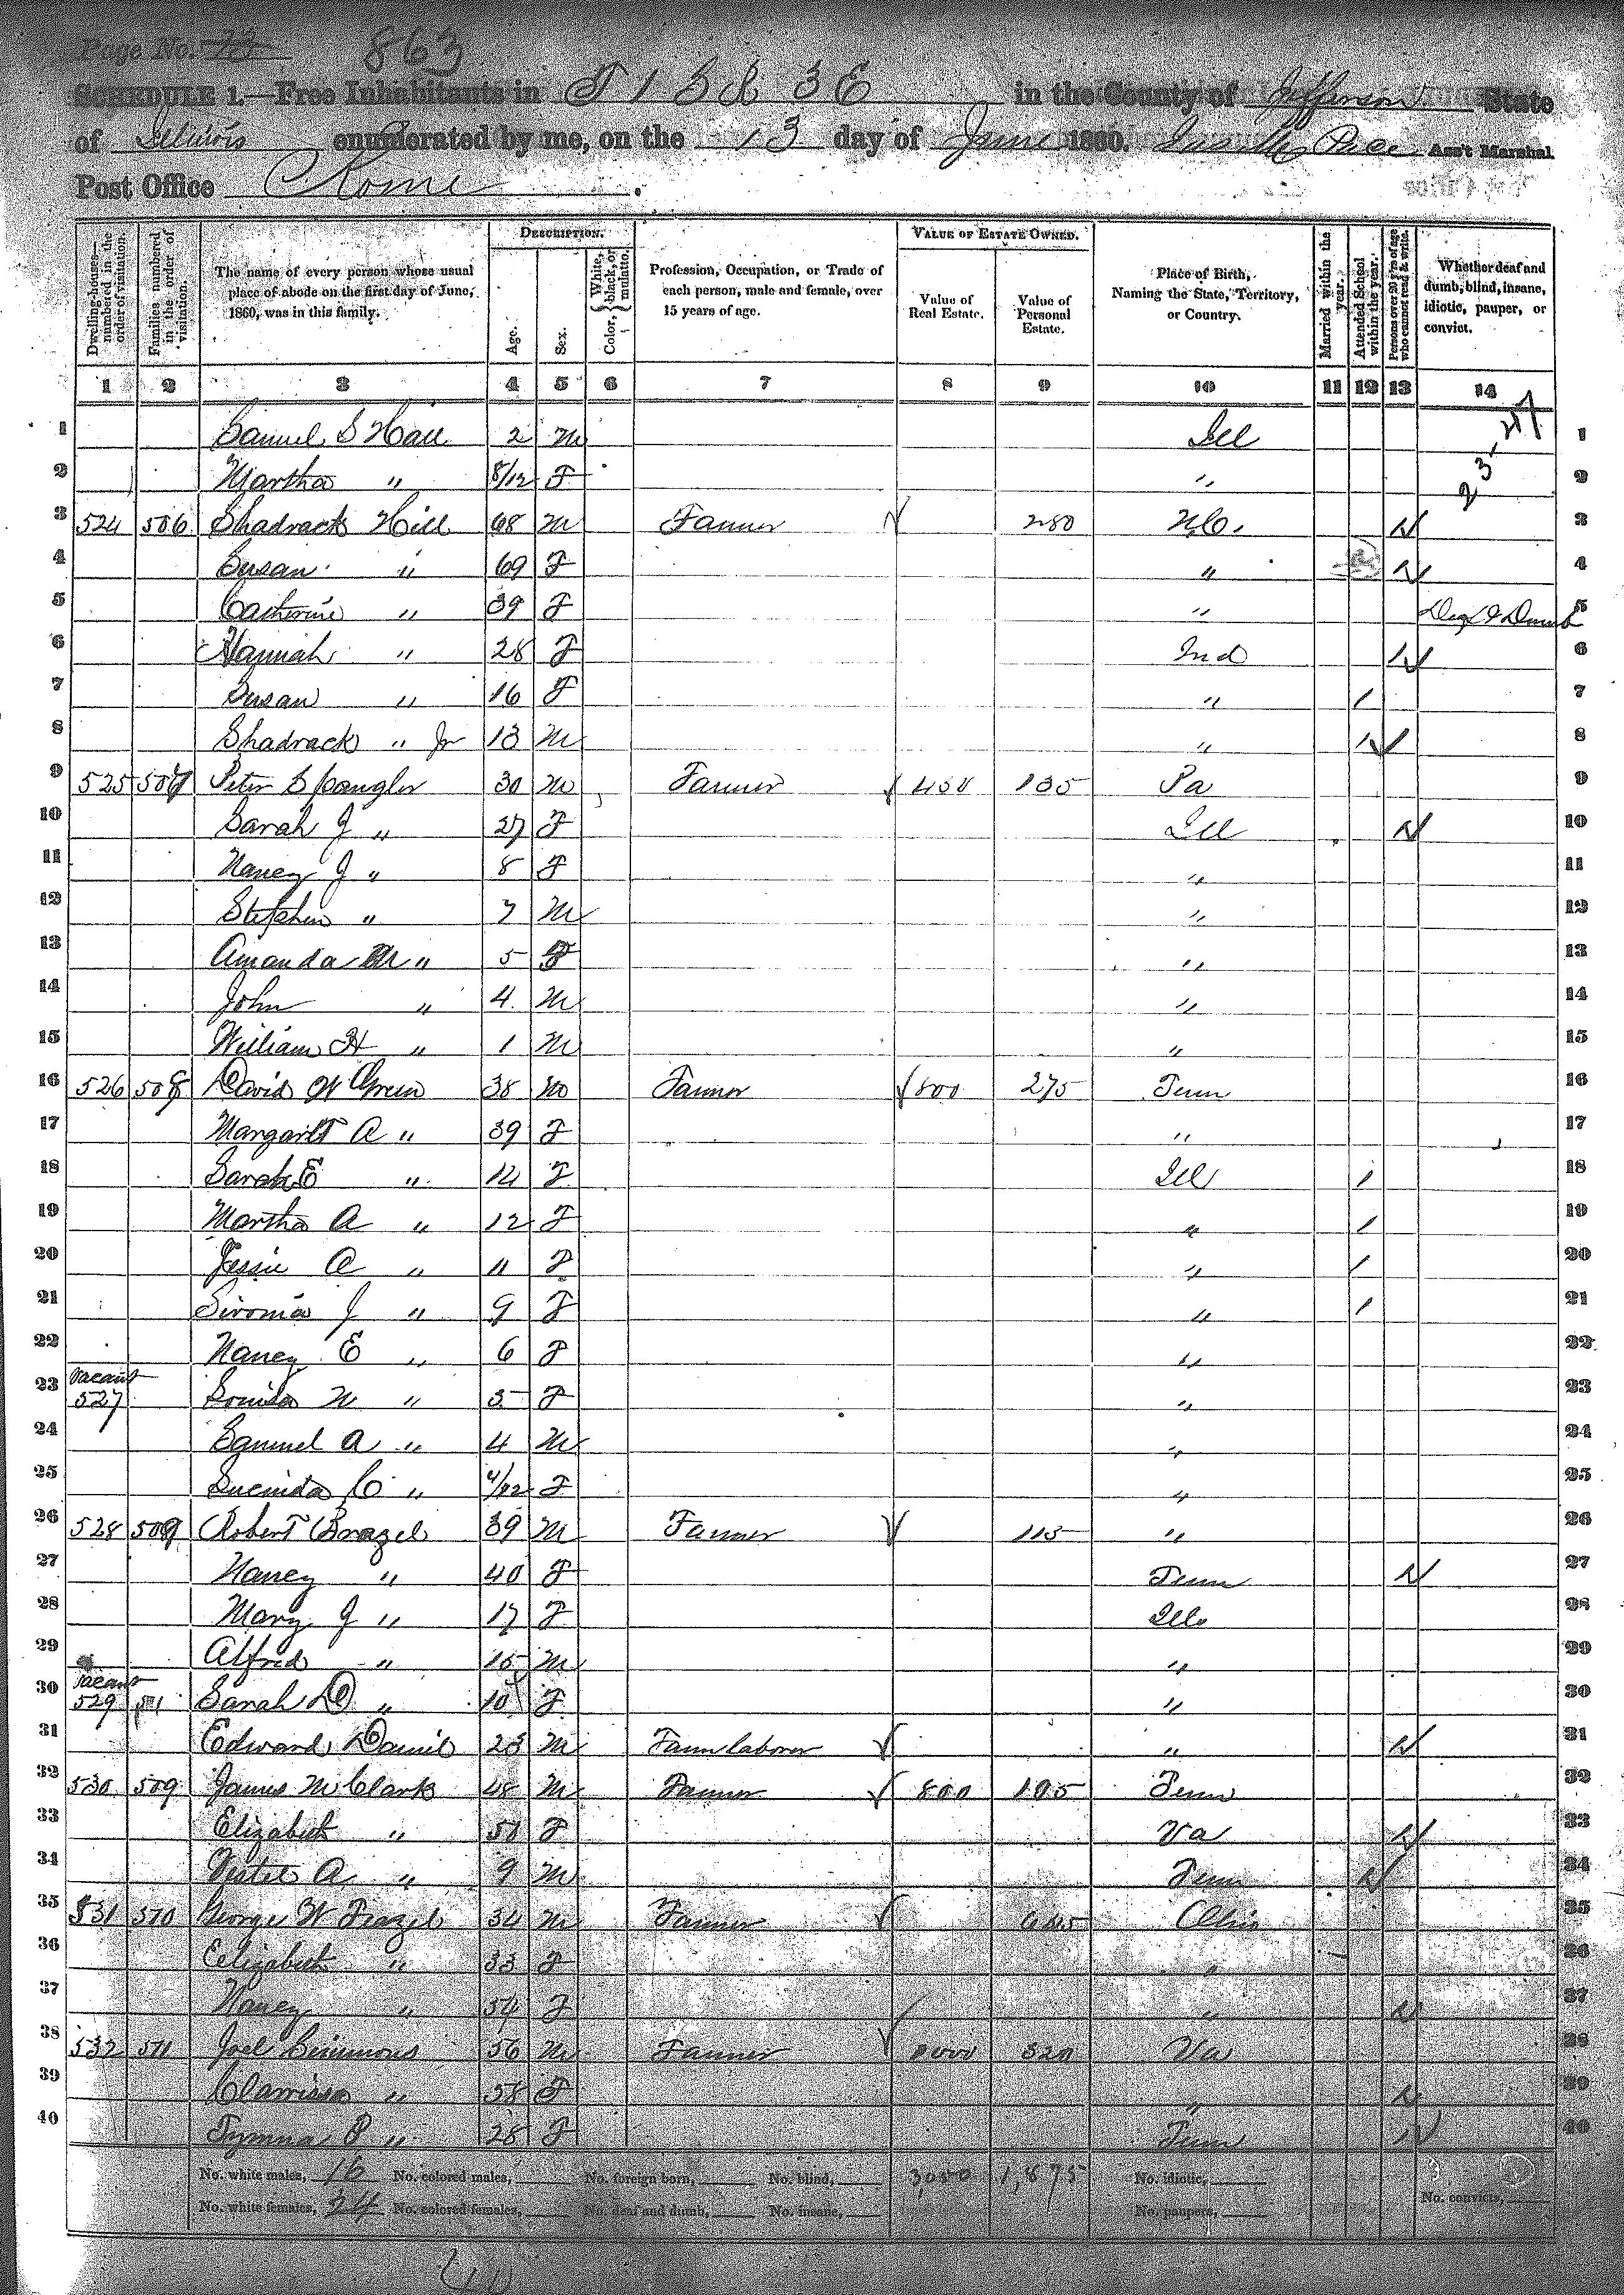 Page No. 73
863
SCHEDULE 1.—Free Inhabitants in T 1 S R 3 E in the County of Jefferson State
of Illinois enumerated by me, on the 13 day of June 1860. Pace Ass't Marshal.
Post Office Rome.
Dwelling-houses—numbered in the order of visitation.
Families numbered in the order of visitation.
The name of every person whose usual place of abode on the first day of June, 1860, was in this family.
DESCRIPTION.
Age.
Sex.
Color, {White, black, or mulatto.
Profession, Occupation, or Trade of each person, male and female, over 15 years of age.
VALUE OF ESTATE OWNED.
Value of Real Estate.
Value of Personal Estate.
Place of Birth, Naming the State, Territory, or Country.
Married within the year.
Attended School within the year.
Persons over 20 y'rs of age who cannot read & write.
Whether deaf and dumb, blind, insane, idiotic, pauper, or convict.
1 2 3 4 5 6 7 8 9 10 11 12 13 14
1 Samuel S Hall 2 M Ill 1
2 Martha " 8/12 F " 2
3 524 506 Shadrack Hill 68 M Farmer 280 N.C. 3
4 Susan " 69 F " 4
5 Catherine " 39 F " Deaf & Dumb 5
6 Hannah " 28 F Ind 6
7 Susan " 16 F " 1 7
8 Shadrack " Jr 13 M " 1 8
9 525 507 Peter Spangler 30 M Farmer 450 135 Pa 9
10 Sarah J " 27 F Ill 10
11 Nancy J " 8 F " 11
12 Stephen " 7 M " 12
13 Amanda M " 5 F " 13
14 John " 4 M " 14
15 William H " 1 M " 15
16 526 508 David W Green 38 M Farmer 800 275 Tenn 16
17 Margaret A " 39 F " 17
18 Sarah E " 14 F Ill 1 18
19 Martha A " 12 F " 1 19
20 Jessie A " 11 F " 1 20
21 J " 9 F " 1 21
22 Nancy E " 6 F " 22
23 vacant 527 Louisa N " 5 F " 23
24 Samuel A " 4 M " 24
25 Lucinda C " 4/12 F " 25
26 528 509 Robert Brazel 39 M Farmer 115 " 26
27 Nancy " 40 F Tenn 27
28 Mary J " 17 F Ills 28
29 Alfred " 15 M " 29
30 vacant 529 Sarah D " 10 F " 30
31 Edward Daniel 23 M Farm laborer " 31
32 530 509 James M Clark 48 M Farmer 800 195 Tenn 32
33 Elizabeth " 50 F Va 33
34 A " 9 M Tenn 34
35 531 510 George W Frazel 34 M Farmer Ohio 35
36 Elizabeth " 33 F " 36
37 Nancy " 54 F " 37
38 532 511 Joel Simmons 56 M Farmer 1000 320 Va 38
39 Clarrissa " 58 F " 39
40 P " 28 F Tenn 40
No. white males, 16 No. colored males, No. foreign born, No. blind, 3,050 1,875 No. idiotic,
No. white females, 24 No. colored females, No. deaf and dumb, No. insane, No. paupers, No. convicts,